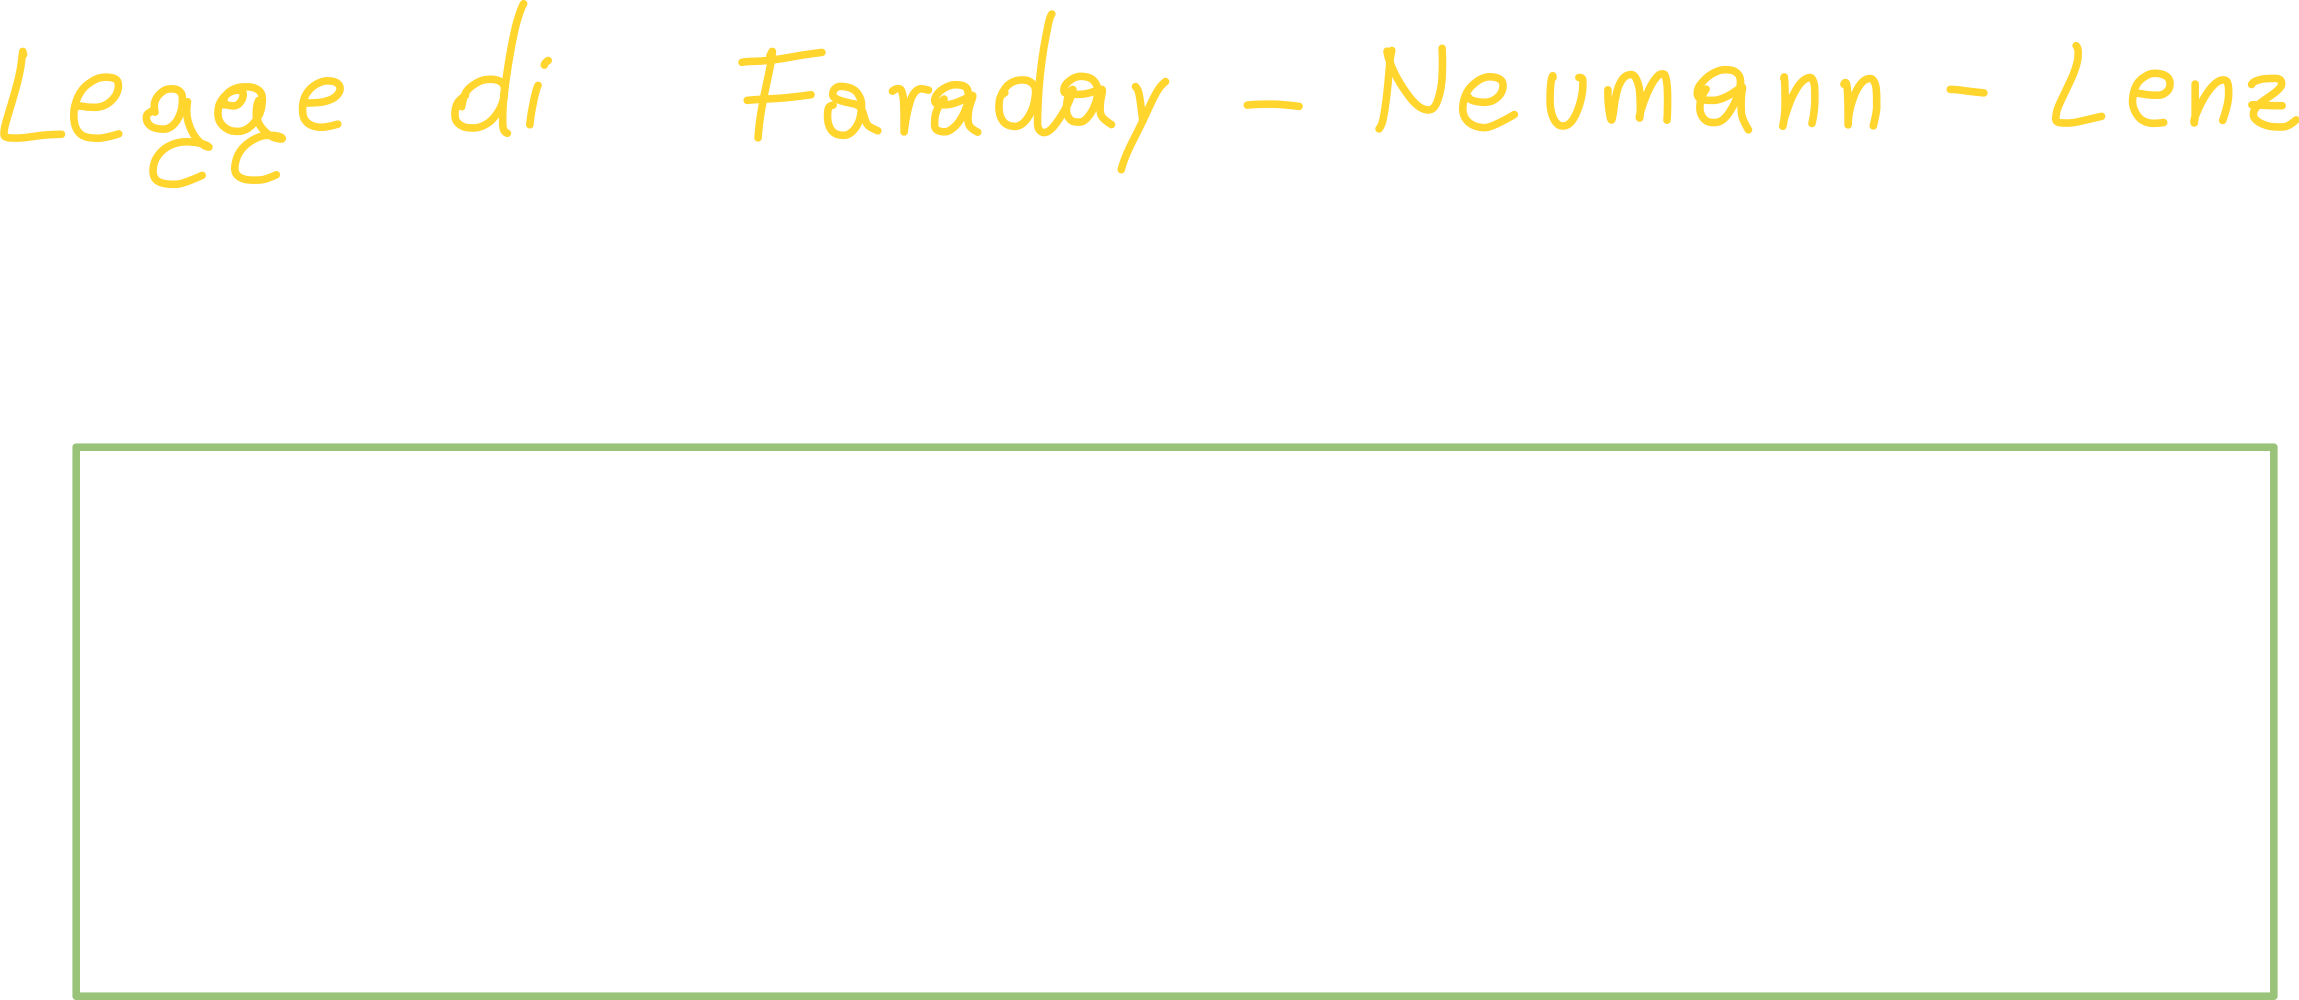 Legge di Faraday - Neumann - Lenz